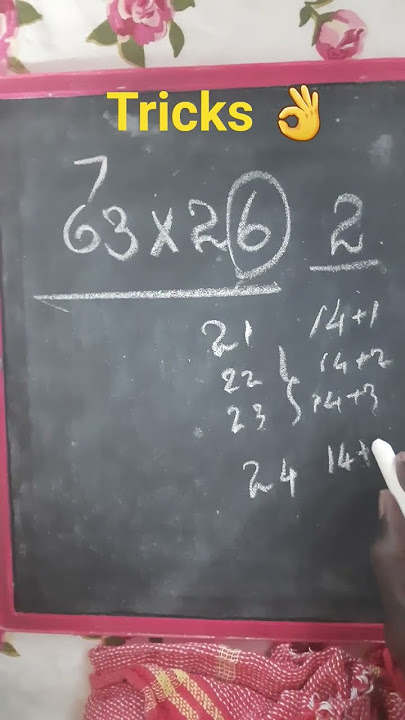 Tricks 👌
7
63 x 26 2
21 14+1
22 14+2
23 14+3
24 14+